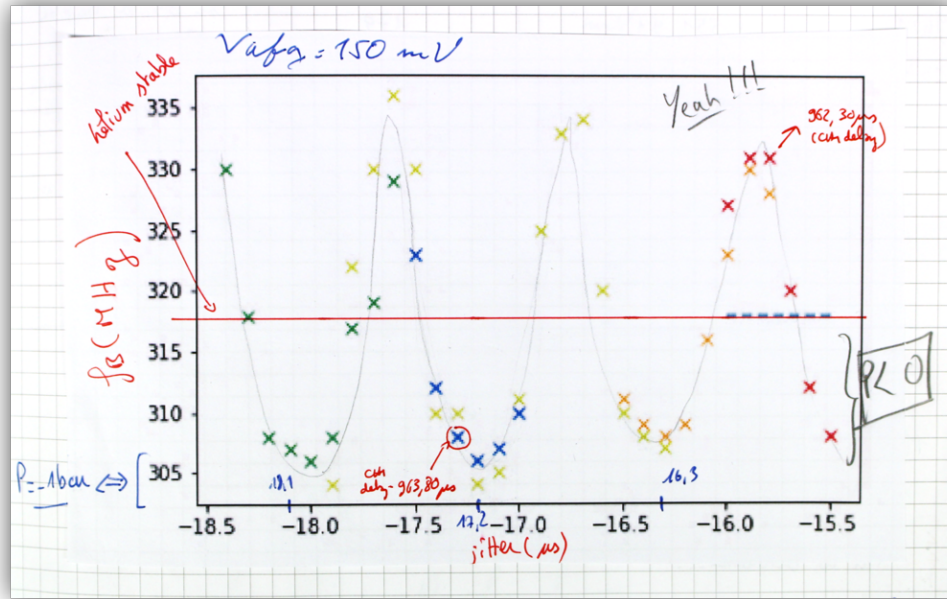 Vafg = 150 mV
helium stable
Yeah!!!
962,30 µs
(cam delay)
fB (MHz)
335
330
325
320
315
310
305
P<0
P=-1bar ⇔ [
18,1
cam
delay = 963,80µs
17,2
16,3
−18.5 −18.0 −17.5 −17.0 −16.5 −16.0 −15.5
jitter (µs)